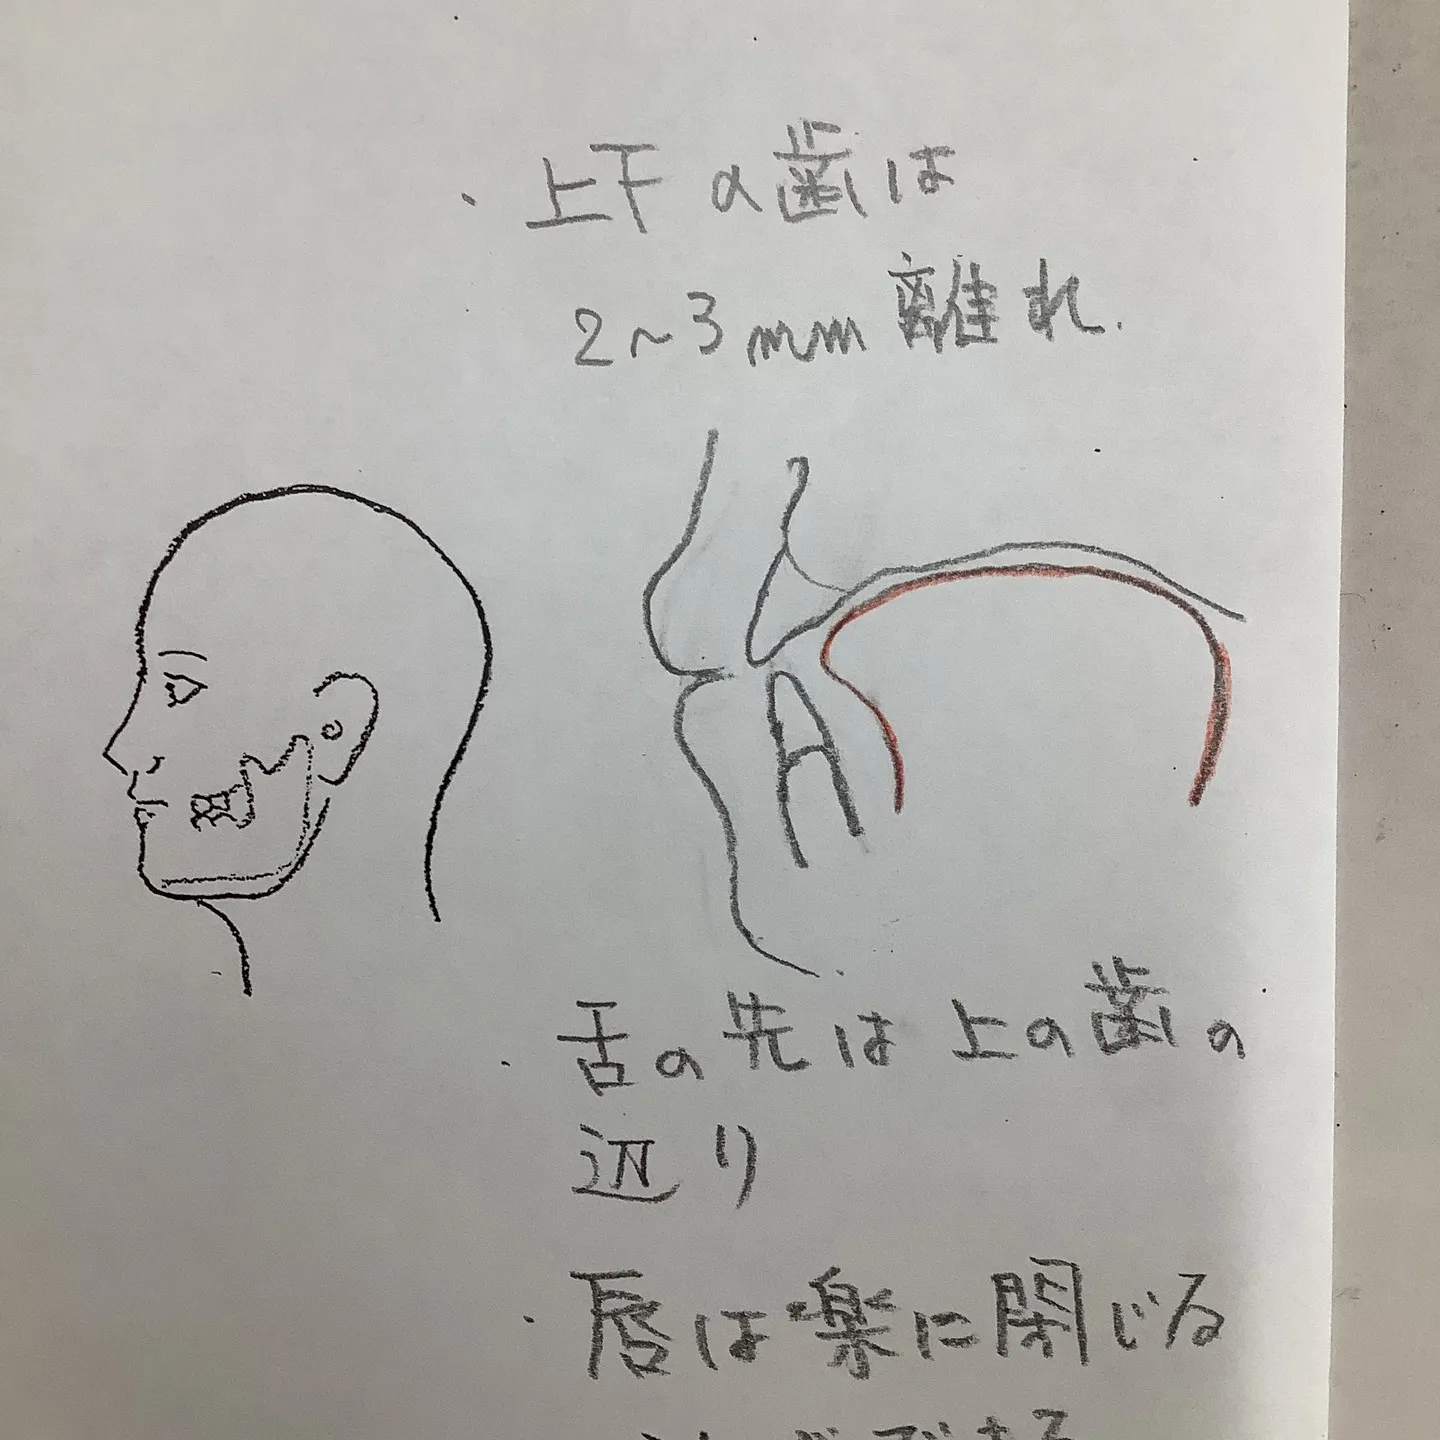 ・上下の歯は
2~3mm離れ.
・舌の先は上の歯の
辺り
・唇は楽に閉じる